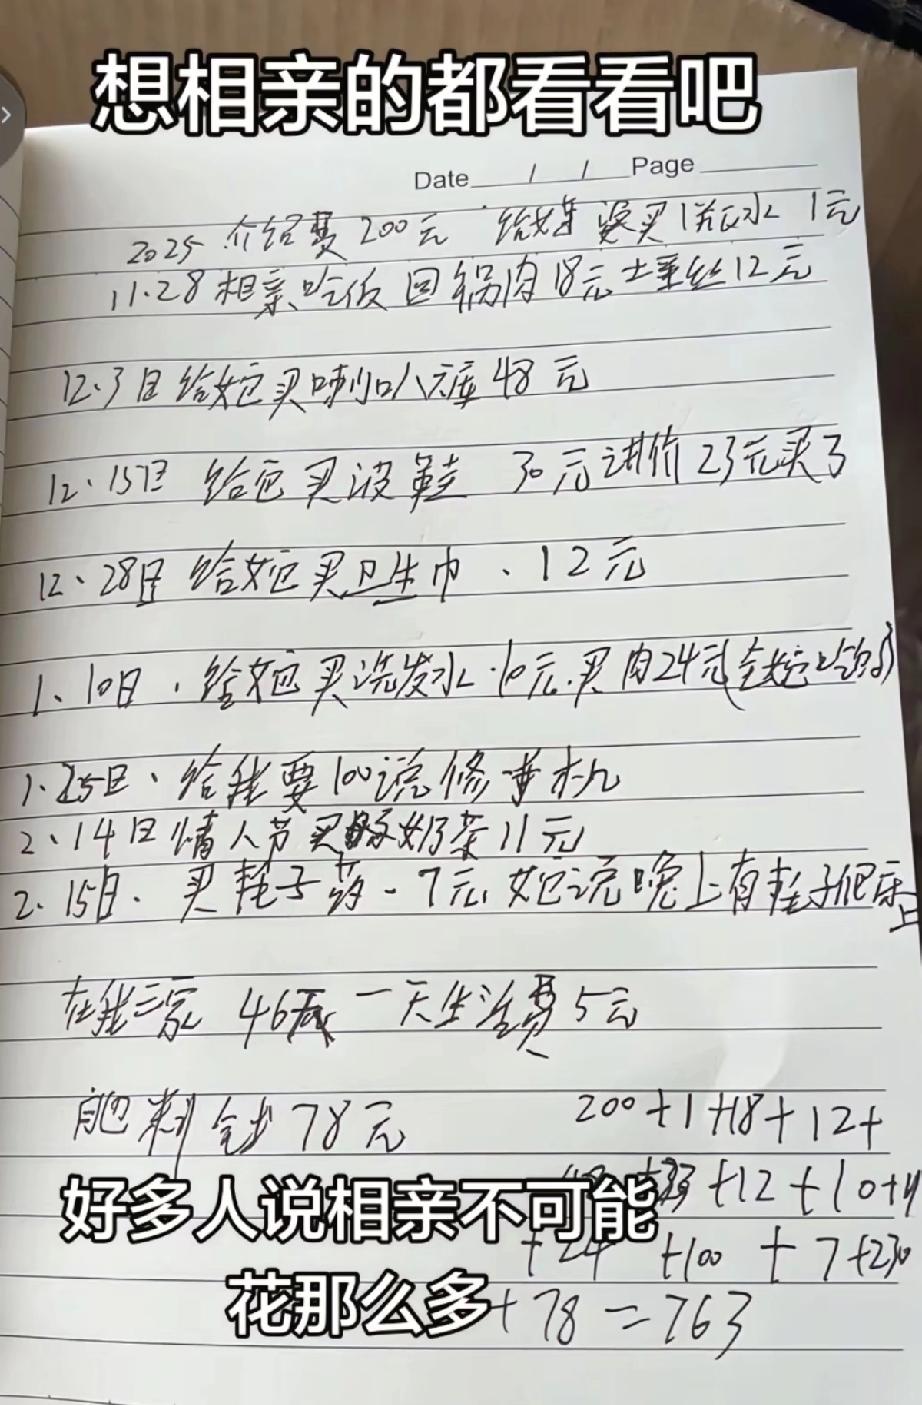 想相亲的都看看吧
Date / / Page
2025 介绍费200元 给她 要买1瓶水 1元
11.28相亲吃饭 回锅肉18元土豆丝12元
12.3日给她买喇叭裤48元
12.15日 给她买波鞋 30元讲价23元买了
12.28日给她买卫生巾.12元
1.10日.给她买洗发水.10元.买肉24元(全她吃的)
1.25日.给我要100说修手机
2.14日情人节买奶茶11元
2.15日.买耗子药-7元她说晚上有耗子爬床上
在我家 46天一天生活费5元
肥料钱78元
200+1+18+12+
+12+10+11
+24 +100 +7+230
+78=763
好多人说相亲不可能
花那么多